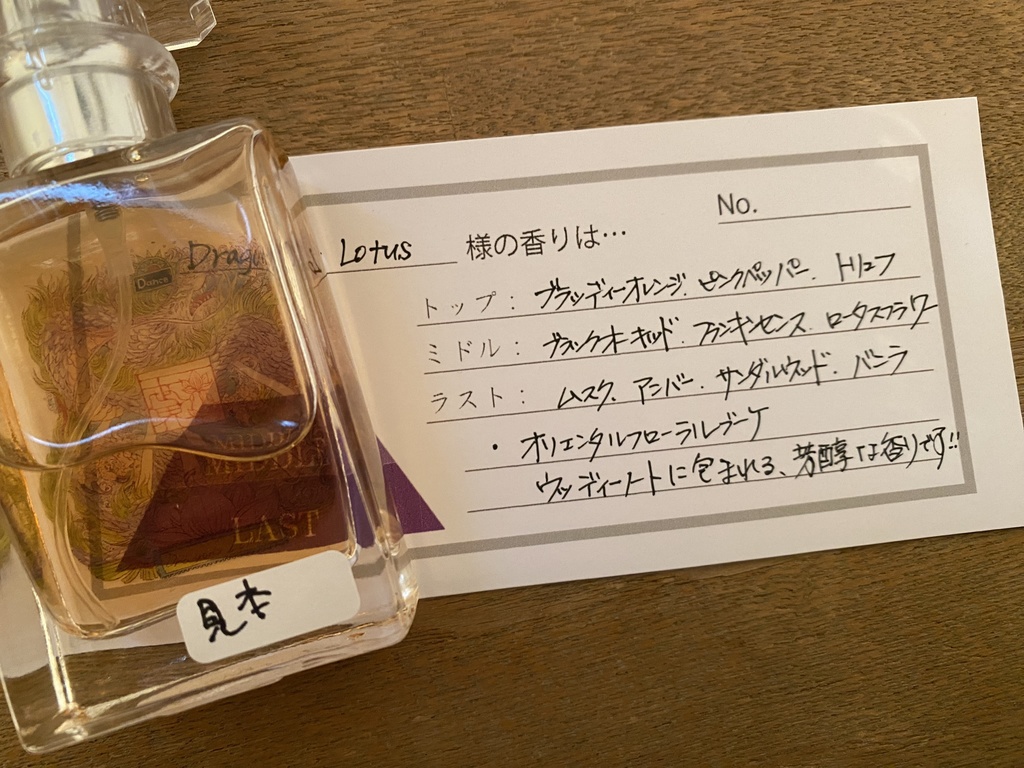 No.
Lotus 様の香りは…
トップ： ブラッディーオレンジ. ピンクペッパー. トリュフ
ミドル： ブラックオーキッド. フランキンセンス. ロータスフラワー
ラスト： ムスク. アンバー. サンダルウッド. バニラ
・オリエンタルフローラルブーケ
ウッディーノートに包まれる、芳醇な香りです!!
Dance
MIDDLE
LAST
見本